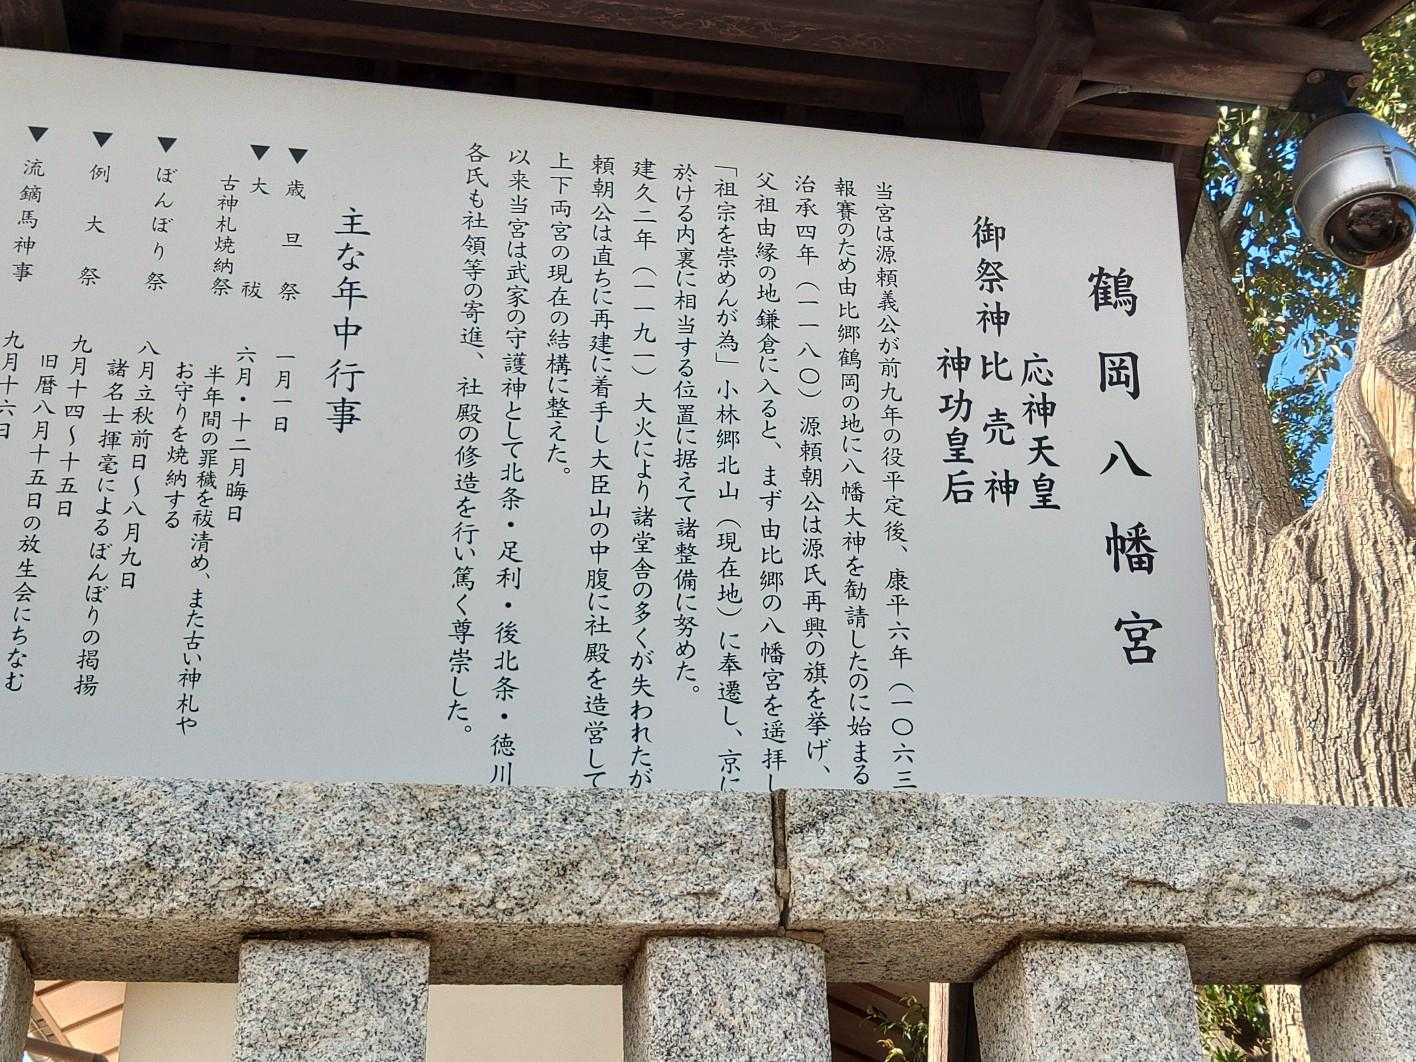 鶴岡八幡宮
応神天皇
御祭神 比売神
神功皇后
当宮は源頼義公が前九年の役平定後、康平六年（一〇六三
報賽のため由比郷鶴岡の地に八幡大神を勧請したのに始まる
治承四年（一一八〇）源頼朝公は源氏再興の旗を挙げ、
父祖由縁の地鎌倉に入ると、まず由比郷の八幡宮を遥拝し
「祖宗を崇めんが為」小林郷北山（現在地）に奉遷し、京に
於ける内裏に相当する位置に据えて諸整備に努めた。
建久二年（一一九一）大火により諸堂舎の多くが失われたが
頼朝公は直ちに再建に着手し大臣山の中腹に社殿を造営して
上下両宮の現在の結構に整えた。
以来当宮は武家の守護神として北条・足利・後北条・徳川
各氏も社領等の寄進、社殿の修造を行い篤く尊崇した。
主な年中行事
▼歳旦祭 一月一日
▼大祓 六月・十二月晦日
古神札焼納祭 半年間の罪穢を祓清め、また古い神札や
お守りを焼納する
▼ぼんぼり祭 八月立秋前日〜八月九日
諸名士揮毫によるぼんぼりの掲揚
▼例大祭 九月十四〜十五日
旧暦八月十五日の放生会にちなむ
▼流鏑馬神事 九月十六日